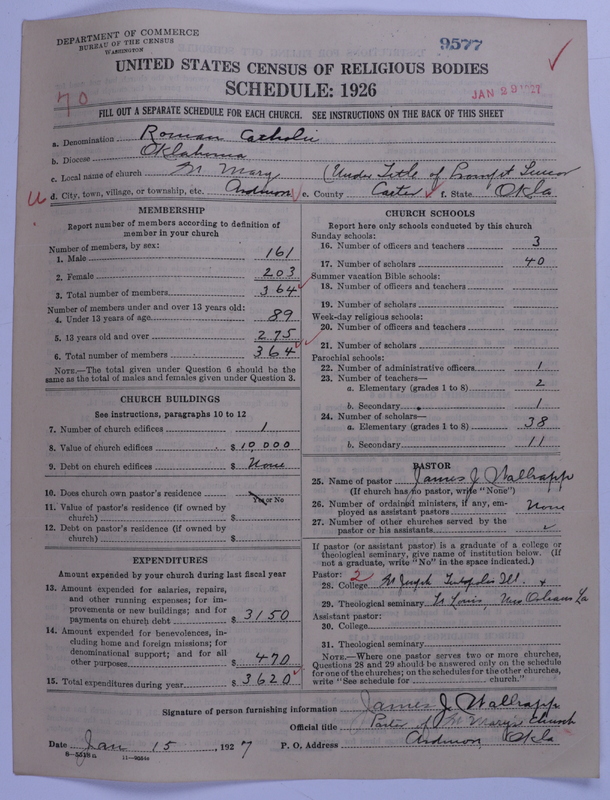 DEPARTMENT OF COMMERCE
BUREAU OF THE CENSUS
WASHINGTON
9577
UNITED STATES CENSUS OF RELIGIOUS BODIES
SCHEDULE: 1926
JAN 29 1927
70
FILL OUT A SEPARATE SCHEDULE FOR EACH CHURCH. SEE INSTRUCTIONS ON THE BACK OF THIS SHEET
a. Denomination Roman Catholic
b. Diocese Oklahoma
c. Local name of church St Mary (Under Title of Prompt Succor
d. City, town, village, or township, etc. Ardmore e. County Carter f. State Okla
MEMBERSHIP
Report number of members according to definition of
member in your church
Number of members, by sex:
1. Male 161
2. Female 203
3. Total number of members 364
Number of members under and over 13 years old:
4. Under 13 years of age 89
5. 13 years old and over 275
6. Total number of members 364
NOTE.—The total given under Question 6 should be the
same as the total of males and females given under Question 3.
CHURCH BUILDINGS
See instructions, paragraphs 10 to 12
7. Number of church edifices 1
8. Value of church edifices $ 10,000
9. Debt on church edifices $ None
10. Does church own pastor's residence Yes or No
11. Value of pastor's residence (if owned by
church) $
12. Debt on pastor's residence (if owned by
church) $
EXPENDITURES
Amount expended by your church during last fiscal year
13. Amount expended for salaries, repairs,
and other running expenses; for im-
provements or new buildings; and for
payments on church debt $ 3150
14. Amount expended for benevolences, in-
cluding home and foreign missions; for
denominational support; and for all
other purposes $ 470
15. Total expenditures during year $ 3620
CHURCH SCHOOLS
Report here only schools conducted by this church
Sunday schools:
16. Number of officers and teachers 3
17. Number of scholars 40
Summer vacation Bible schools:
18. Number of officers and teachers
19. Number of scholars
Week-day religious schools:
20. Number of officers and teachers
21. Number of scholars
Parochial schools:
22. Number of administrative officers 1
23. Number of teachers—
a. Elementary (grades 1 to 8) 2
b. Secondary 1
24. Number of scholars—
a. Elementary (grades 1 to 8) 38
b. Secondary 11
PASTOR
25. Name of pastor James J Wallrapp
(If church has no pastor, write "None")
26. Number of ordained ministers, if any, em-
ployed as assistant pastors None
27. Number of other churches served by the
pastor or his assistants
If pastor (or assistant pastor) is a graduate of a college or
theological seminary, give name of institution below. (If
not a graduate, write "No" in the space indicated.)
Pastor: 2
28. College St Joseph Teutopolis Ill. +
29. Theological seminary St Louis, New Orleans La
Assistant pastor:
30. College
31. Theological seminary
NOTE.—Where one pastor serves two or more churches,
Questions 28 and 29 should be answered only on the schedule
for one of the churches; on the schedules for the other churches,
write "See schedule for church."
Signature of person furnishing information James J. Wallrapp
Official title Pastor of St Mary's Church
Date Jan 15, 1927 P. O. Address Ardmore Okla
8—5518a 11—9554a